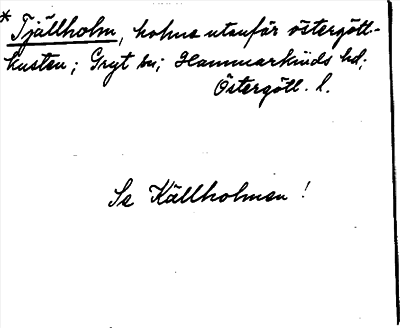 * Tjällholm, holme utanför östergötl-
kusten; Gryt sn; Hammarkinds hd;
Östergötl. l.
Se Källholmen!